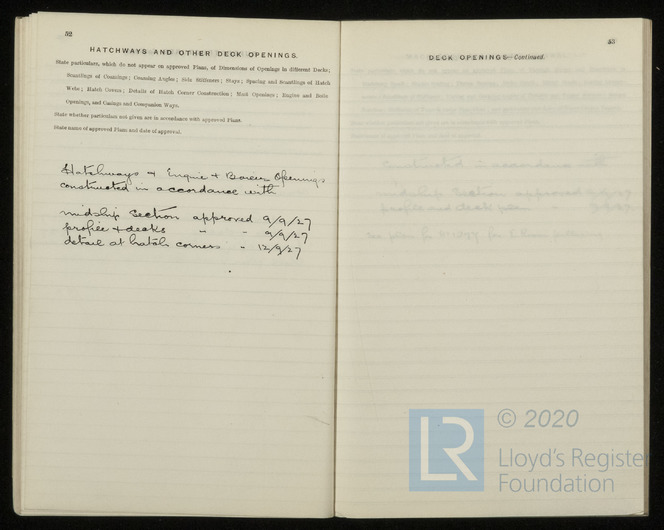 52
HATCHWAYS AND OTHER DECK OPENINGS.
State particulars, which do not appear on approved Plans, of Dimensions of Openings in different Decks;
Scantlings of Coamings; Coaming Angles; Side Stiffeners; Stays; Spacing and Scantlings of Hatch
Webs; Hatch Covers; Details of Hatch Corner Construction; Mast Openings; Engine and Boiler
Openings, and Casings and Companion Ways.
State whether particulars not given are in accordance with approved Plans.
State name of approved Plans and date of approval.
Hatchways + Engine + Boiler Openings
constructed in accordance with
midship Section approved 9/9/27
profile + decks " " 9/9/27
detail at hatch corners " 12/9/27
53
DECK OPENINGS—Continued.
LR
© 2020
Lloyd's Register
Foundation